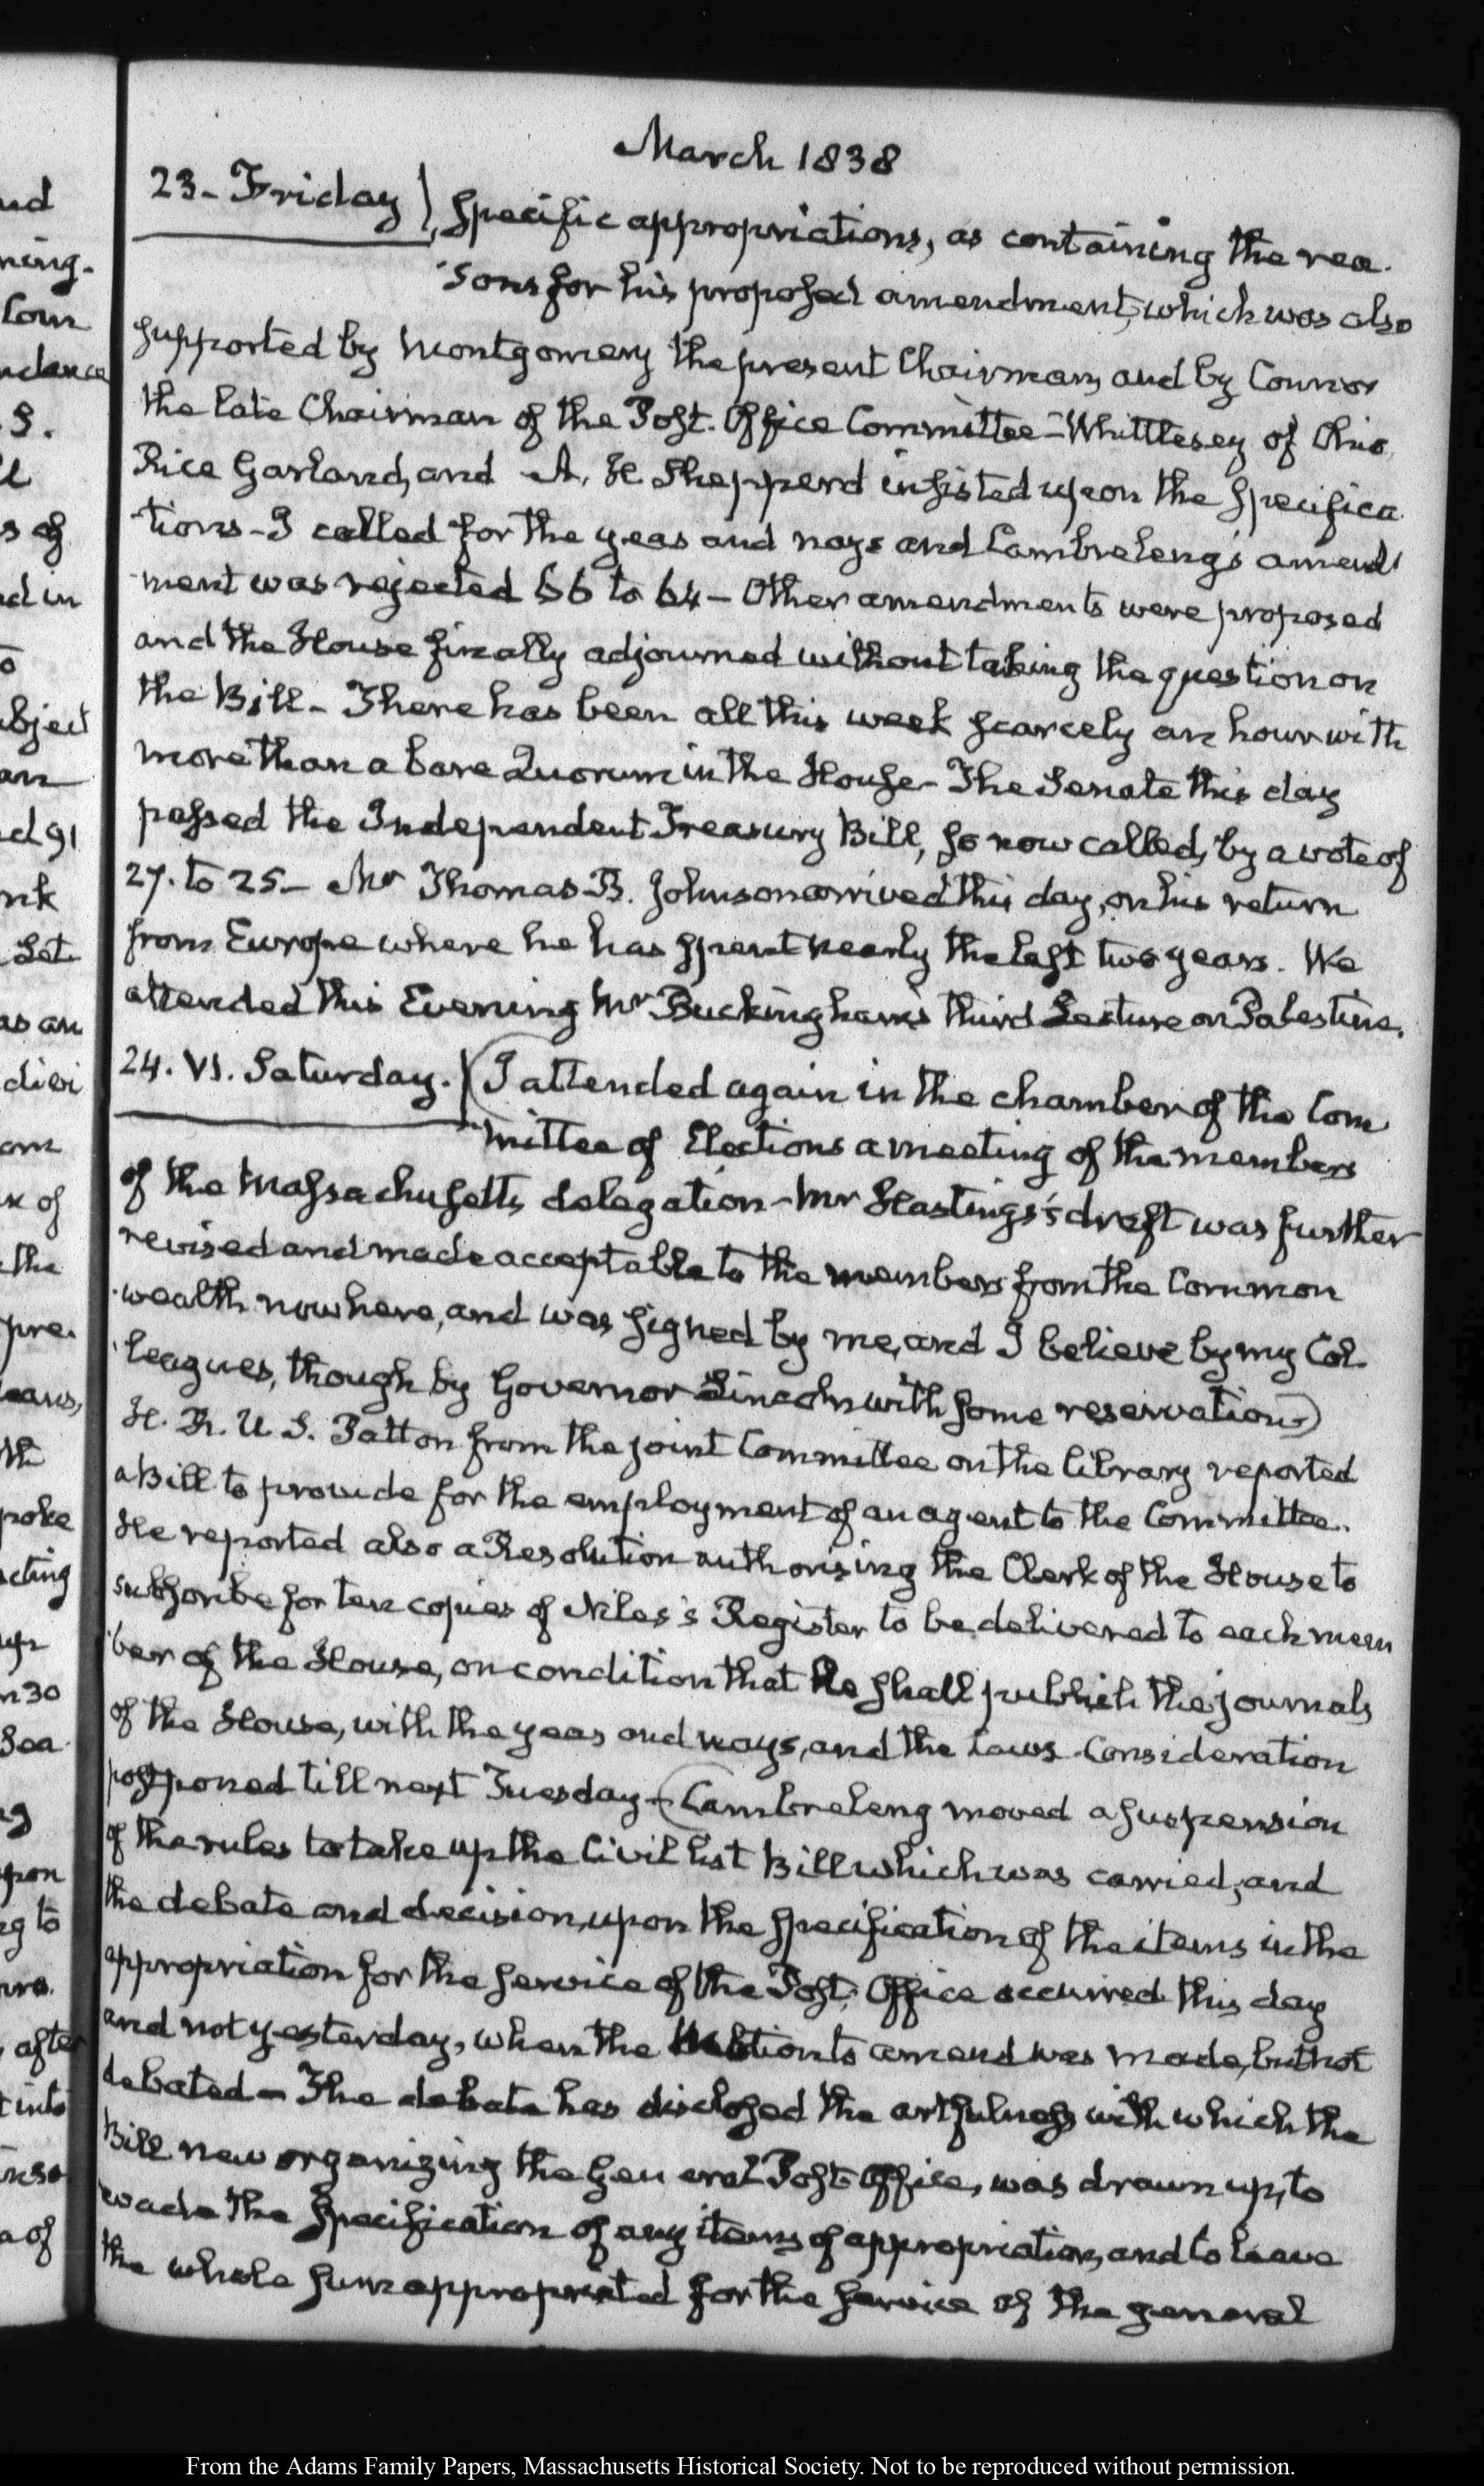 March 1838
23 - Friday) Specific appropriations, as containing the rea-
sons for his proposed amendment, which was also
supported by Montgomery the present Chairman, and by Connor
the late Chairman of the Post-Office Committee - Whittlesey of Ohio
Rice Garland, and A. H. Shepperd insisted upon the Specifica
tions - I called for the yeas and nays and Cambreleng's amend
ment was rejected 56 to 64 - Other amendments were proposed
and the House finally adjourned without taking the question on
the Bill - There has been all this week scarcely an hour with
more than a bare Quorum in the House - The Senate this day
passed the Independent Treasury Bill, so now called, by a vote of
27. to 25 - Mr Thomas B. Johnson arrived this day, on his return
from Europe where he has spent nearly the last two years. We
attended this Evening Mr Buckingham's third Lecture on Palestine.
24. VI. Saturday. (I attended again in the chamber of the Com
mittee of Elections a meeting of the members
of the Massachusetts delegation - Mr Hastings's draft was further
revised and made acceptable to the members from the Common
wealth now here, and was signed by me, and I believe by my Col-
leagues, though by Governor Lincoln with some reservation -)
H. R. U. S. Patton from the joint Committee on the library reported
a Bill to provide for the employment of an agent to the Committee.
He reported also a Resolution authorising the Clerk of the House to
subscribe for ten copies of Niles's Register to be delivered to each mem
ber of the House, on condition that he shall publish the journals
of the House, with the yeas and nays, and the Laws - Consideration
postponed till next Tuesday - (Cambreleng moved a suspension
of the rules to take up the Civil list Bill which was carried, and
the debate and decision, upon the specification of the items in the
appropriation for the service of the Post-Office occurred this day
and not yesterday, when the motion to amend was made, but not
debated - The debate has disclosed the artfulness with which the
Bill new organizing the General Post-Office, was drawn up, to
evade the specification of any items of appropriation, and to leave
the whole sum appropriated for the service of the general
From the Adams Family Papers, Massachusetts Historical Society. Not to be reproduced without permission.